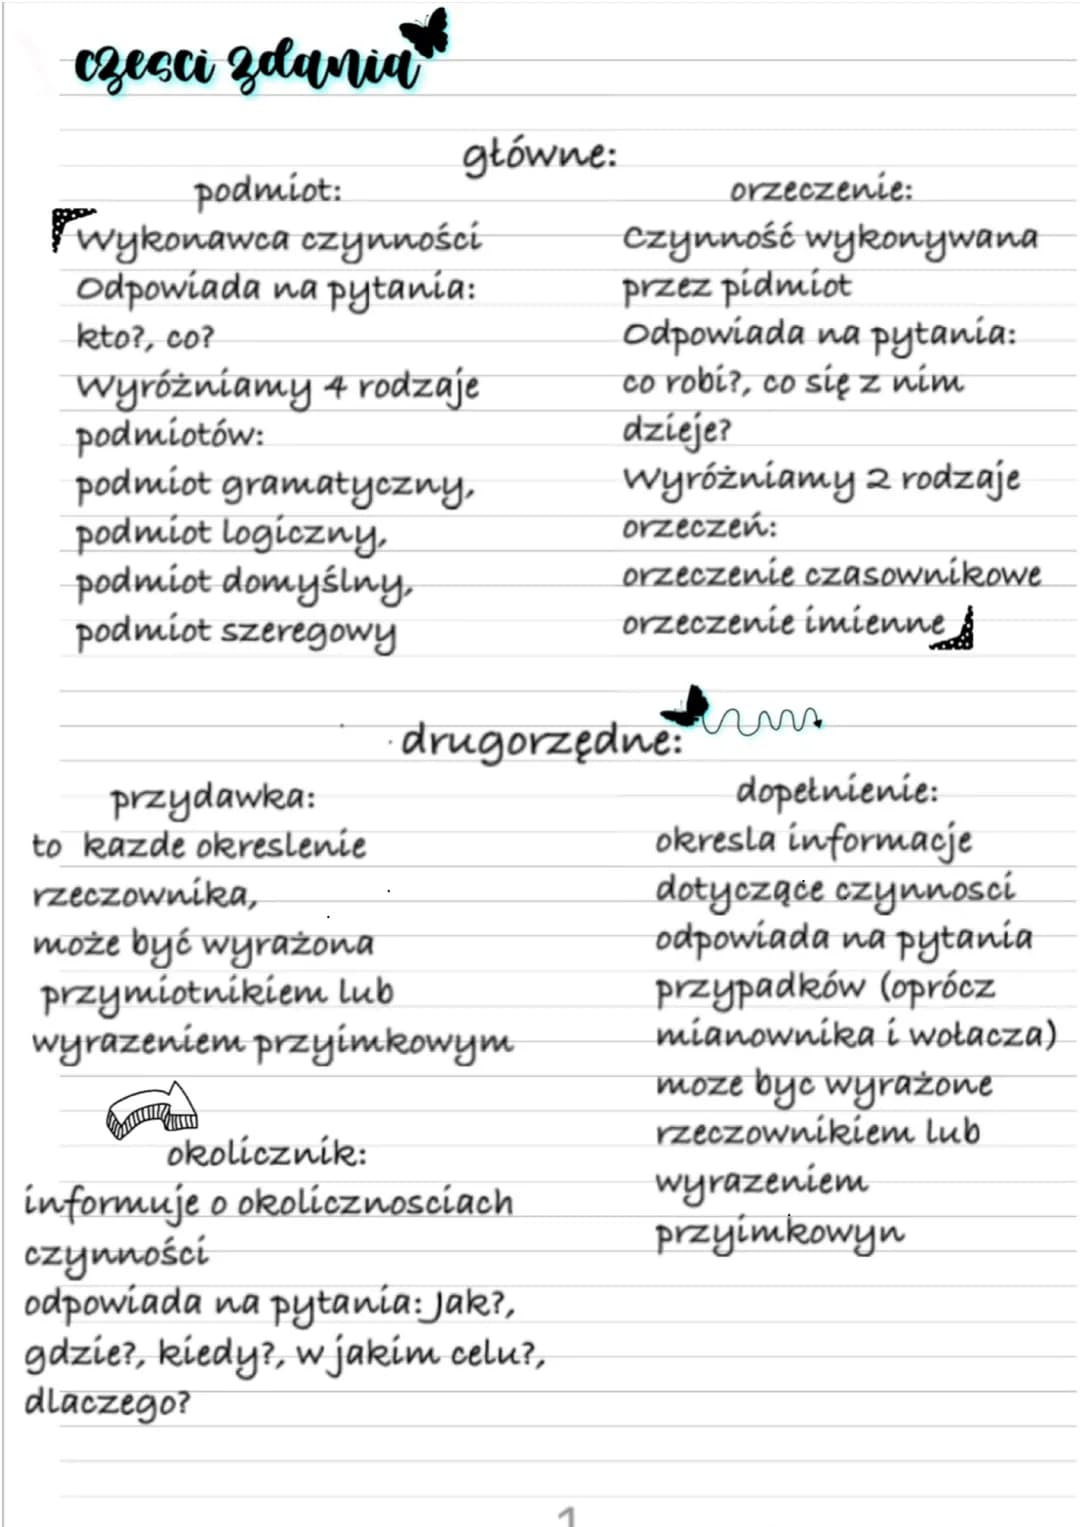 części zdania
główne:
podmiot:
Wykonawca czynności
Odpowiada na pytania:
kto?, co?
Wyróżniamy 4 rodzaje
podmiotów:
podmiot gramatyczny,
podmiot logiczny,
podmiot domyślny,
podmiot szeregowy
orzeczenie:
Czynność wykonywana
przez pidmiot
Odpowiada na pytania:
co robi?, co się z nim
dzieje?
Wyróżniamy 2 rodzaje
orzeczeń:
orzeczenie czasownikowe
orzeczenie imienne
drugorzędne:
przydawka:
to kazde okreslenie
rzeczownika,
może być wyrażona
przymiotnikiem lub
wyrazeniem przyimkowym
okolicznik:
informuje o okolicznosciach
czynności
odpowiada na pytania: Jak?,
gdzie?, kiedy?, w jakim celu?,
dlaczego?
dopełnienie:
okresla informacje
dotyczące czynnosci
odpowiada na pytania
przypadków (oprócz
mianownika i wołacza)
moze byc wyrażone
rzeczownikiem lub
wyrazeniem
przyimkowyn
1